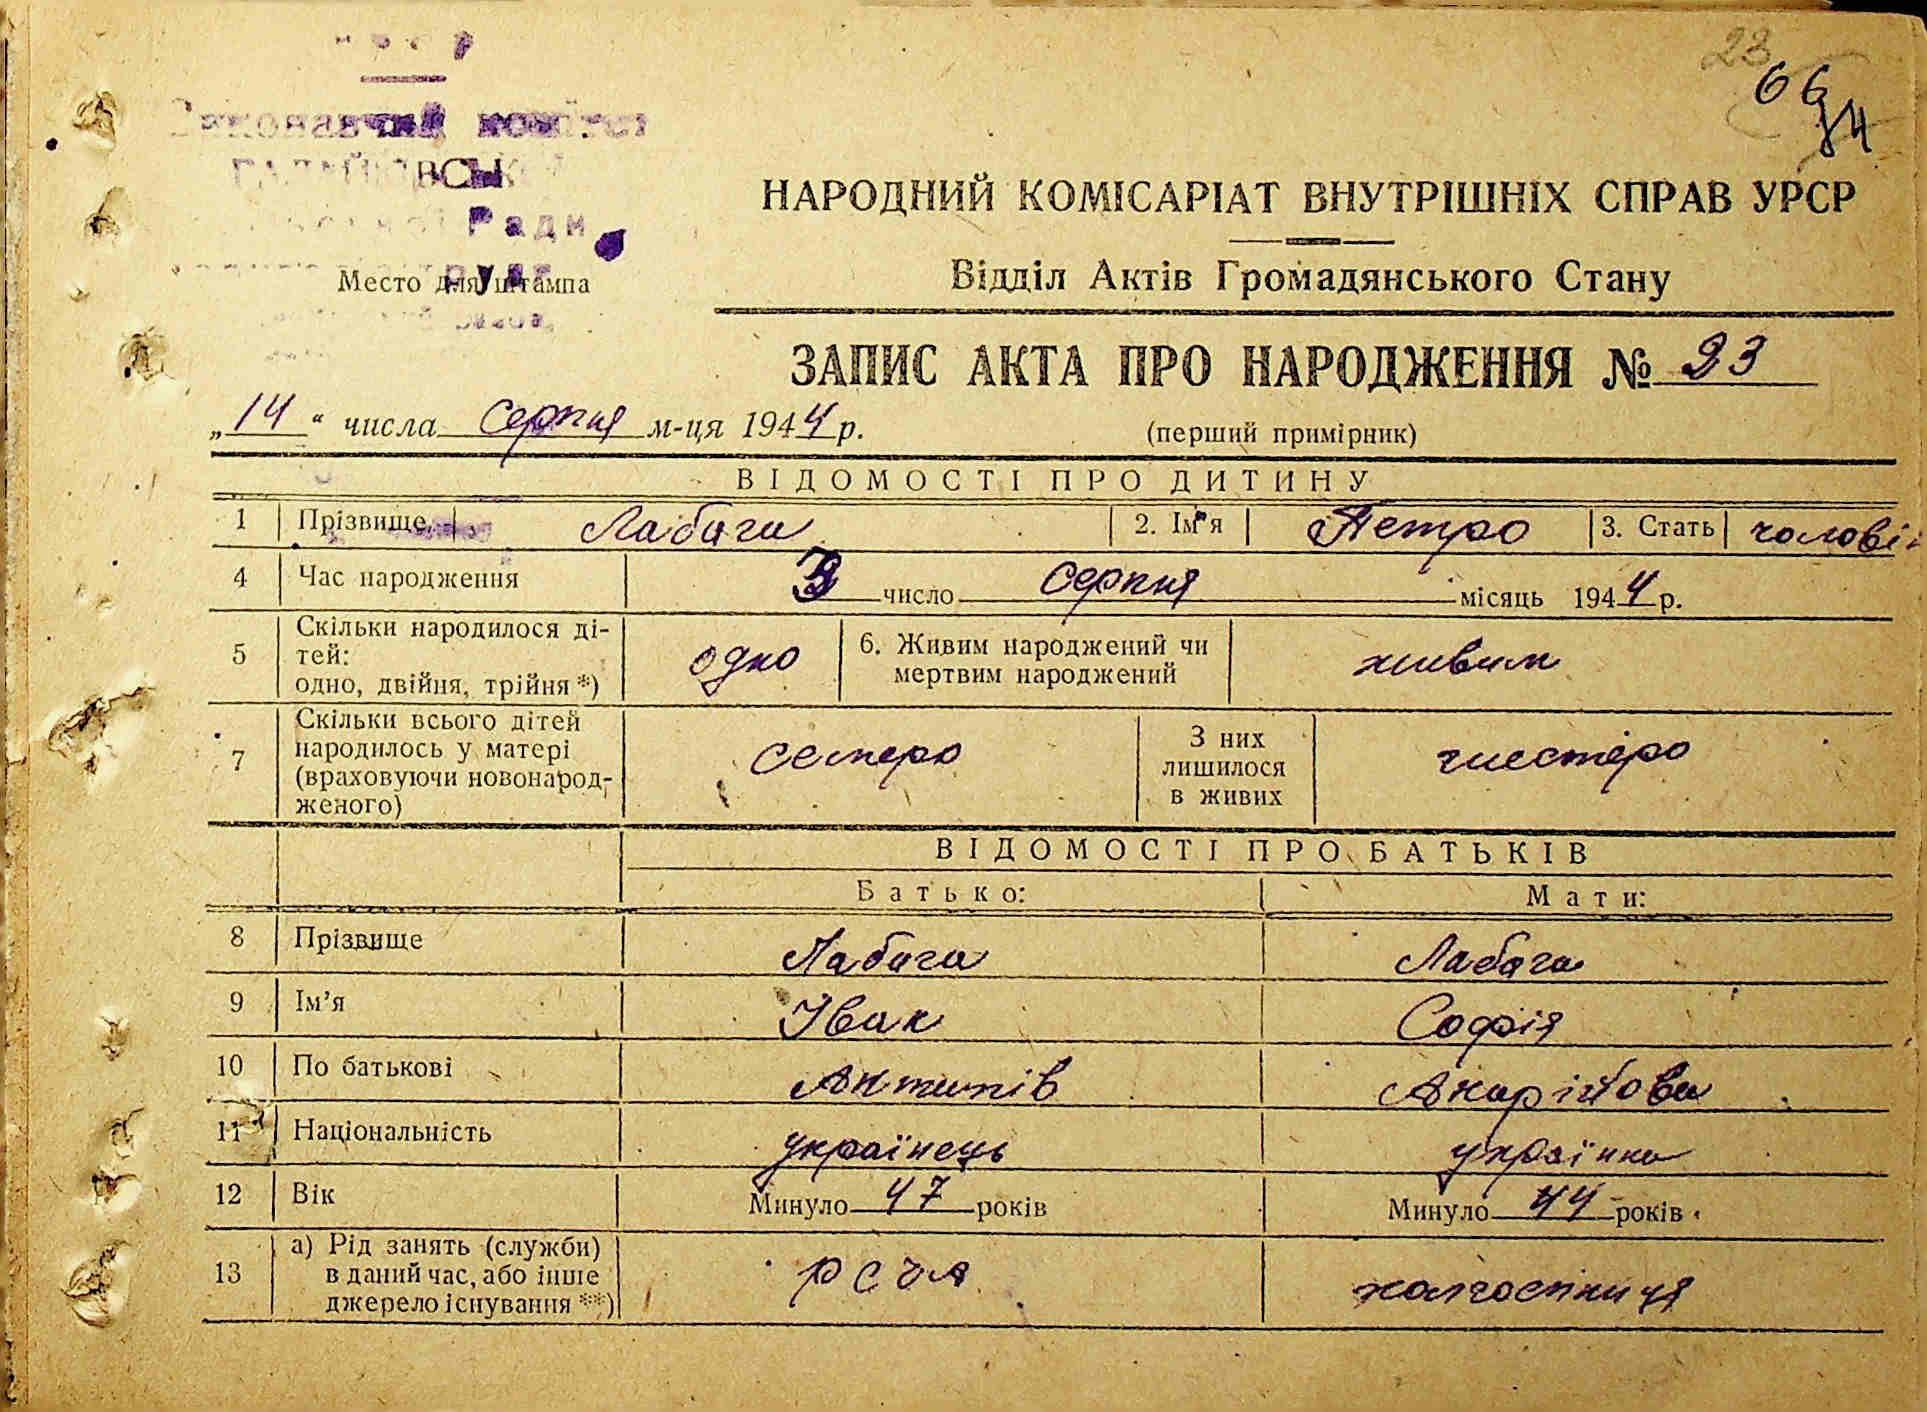 23
66
74
Виконавчий комітет
Ради
НАРОДНИЙ КОМІСАРІАТ ВНУТРІШНІХ СПРАВ УРСР
Место для штампа
Відділ Актів Громадянського Стану
ЗАПИС АКТА ПРО НАРОДЖЕННЯ № 23
„14“ числа Серпня м-ця 1944 р. (перший примірник)
ВІДОМОСТІ ПРО ДИТИНУ
1 Прізвище Лабага 2. Ім'я Петро 3. Стать чолові
4 Час народження 3 число Серпня місяць 1944 р.
5 Скільки народилося ді-
тей:
одно, двійня, трійня *) одно 6. Живим народжений чи
мертвим народжений живим
7 Скільки всього дітей
народилось у матері
(враховуючи новонарод-
женого) семеро З них
лишилося
в живих шестеро
ВІДОМОСТІ ПРО БАТЬКІВ
Батько: Мати:
8 Прізвище Лабага Лабага
9 Ім'я Іван Софія
10 По батькові Антипів Андріїова
11 Національність українець українка
12 Вік Минуло 47 років Минуло 44 років
13 а) Рід занять (служби)
в даний час, або інше
джерело існування **) РСЧА колгоспниця